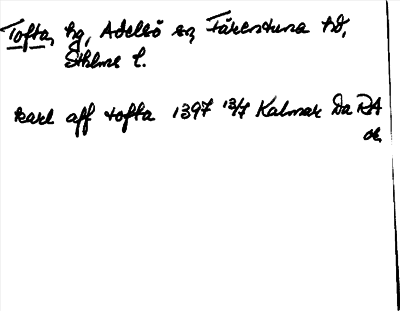 Tofta, hg, Adelsö sn, Färentuna hd,
Sthlms l.
karl aff tofta 1397 13/7 Kalmar Da RA
or.